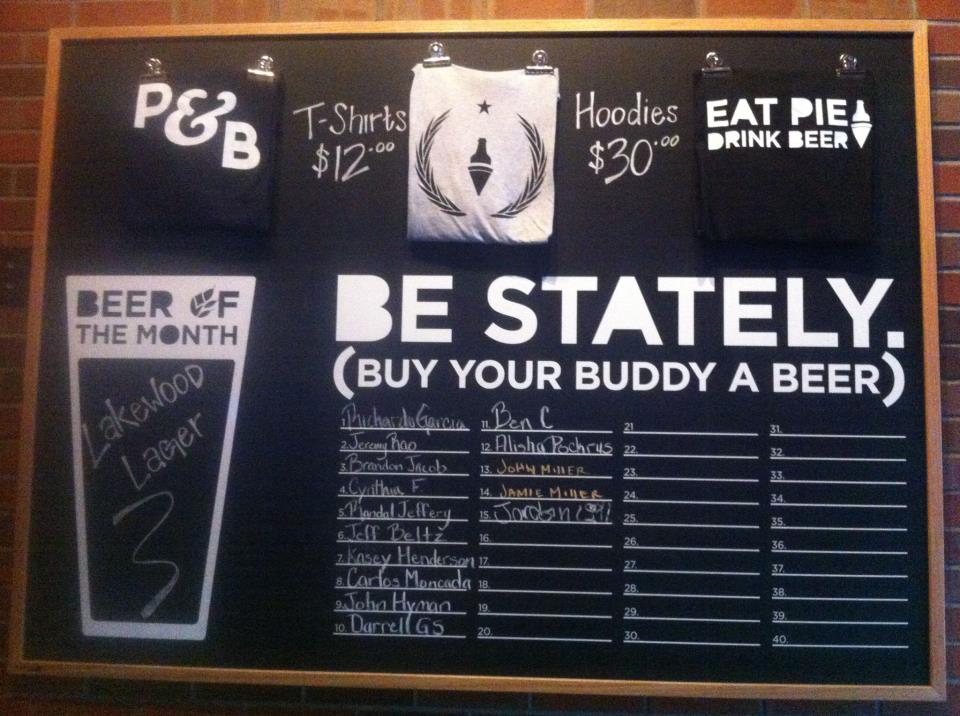 P&B
T-Shirts
$12.00
Hoodies
$30.00
EAT PIE
DRINK BEER
BEER OF
THE MONTH
Lakewood
Lager
3
BE STATELY.
(BUY YOUR BUDDY A BEER)
1. Richardo Garcia
2. Jeremy Rao
3. Brandon Jacob
4. Cynthia F
5. Jeffery
6. Jeff Beltz
7. Kasey Henderson
8. Carlos Moncada
9. John Hyman
10. Darrell GS
11. Ben C
12. Alisha Pochrus
13. JOHN MILLER
14. JAMIE MILLER
15. Jordan
16.
17.
18.
19.
20.
21
22.
23.
24.
25.
26.
27.
28.
29.
30.
31.
32.
33.
34.
35.
36.
37.
38.
39.
40.